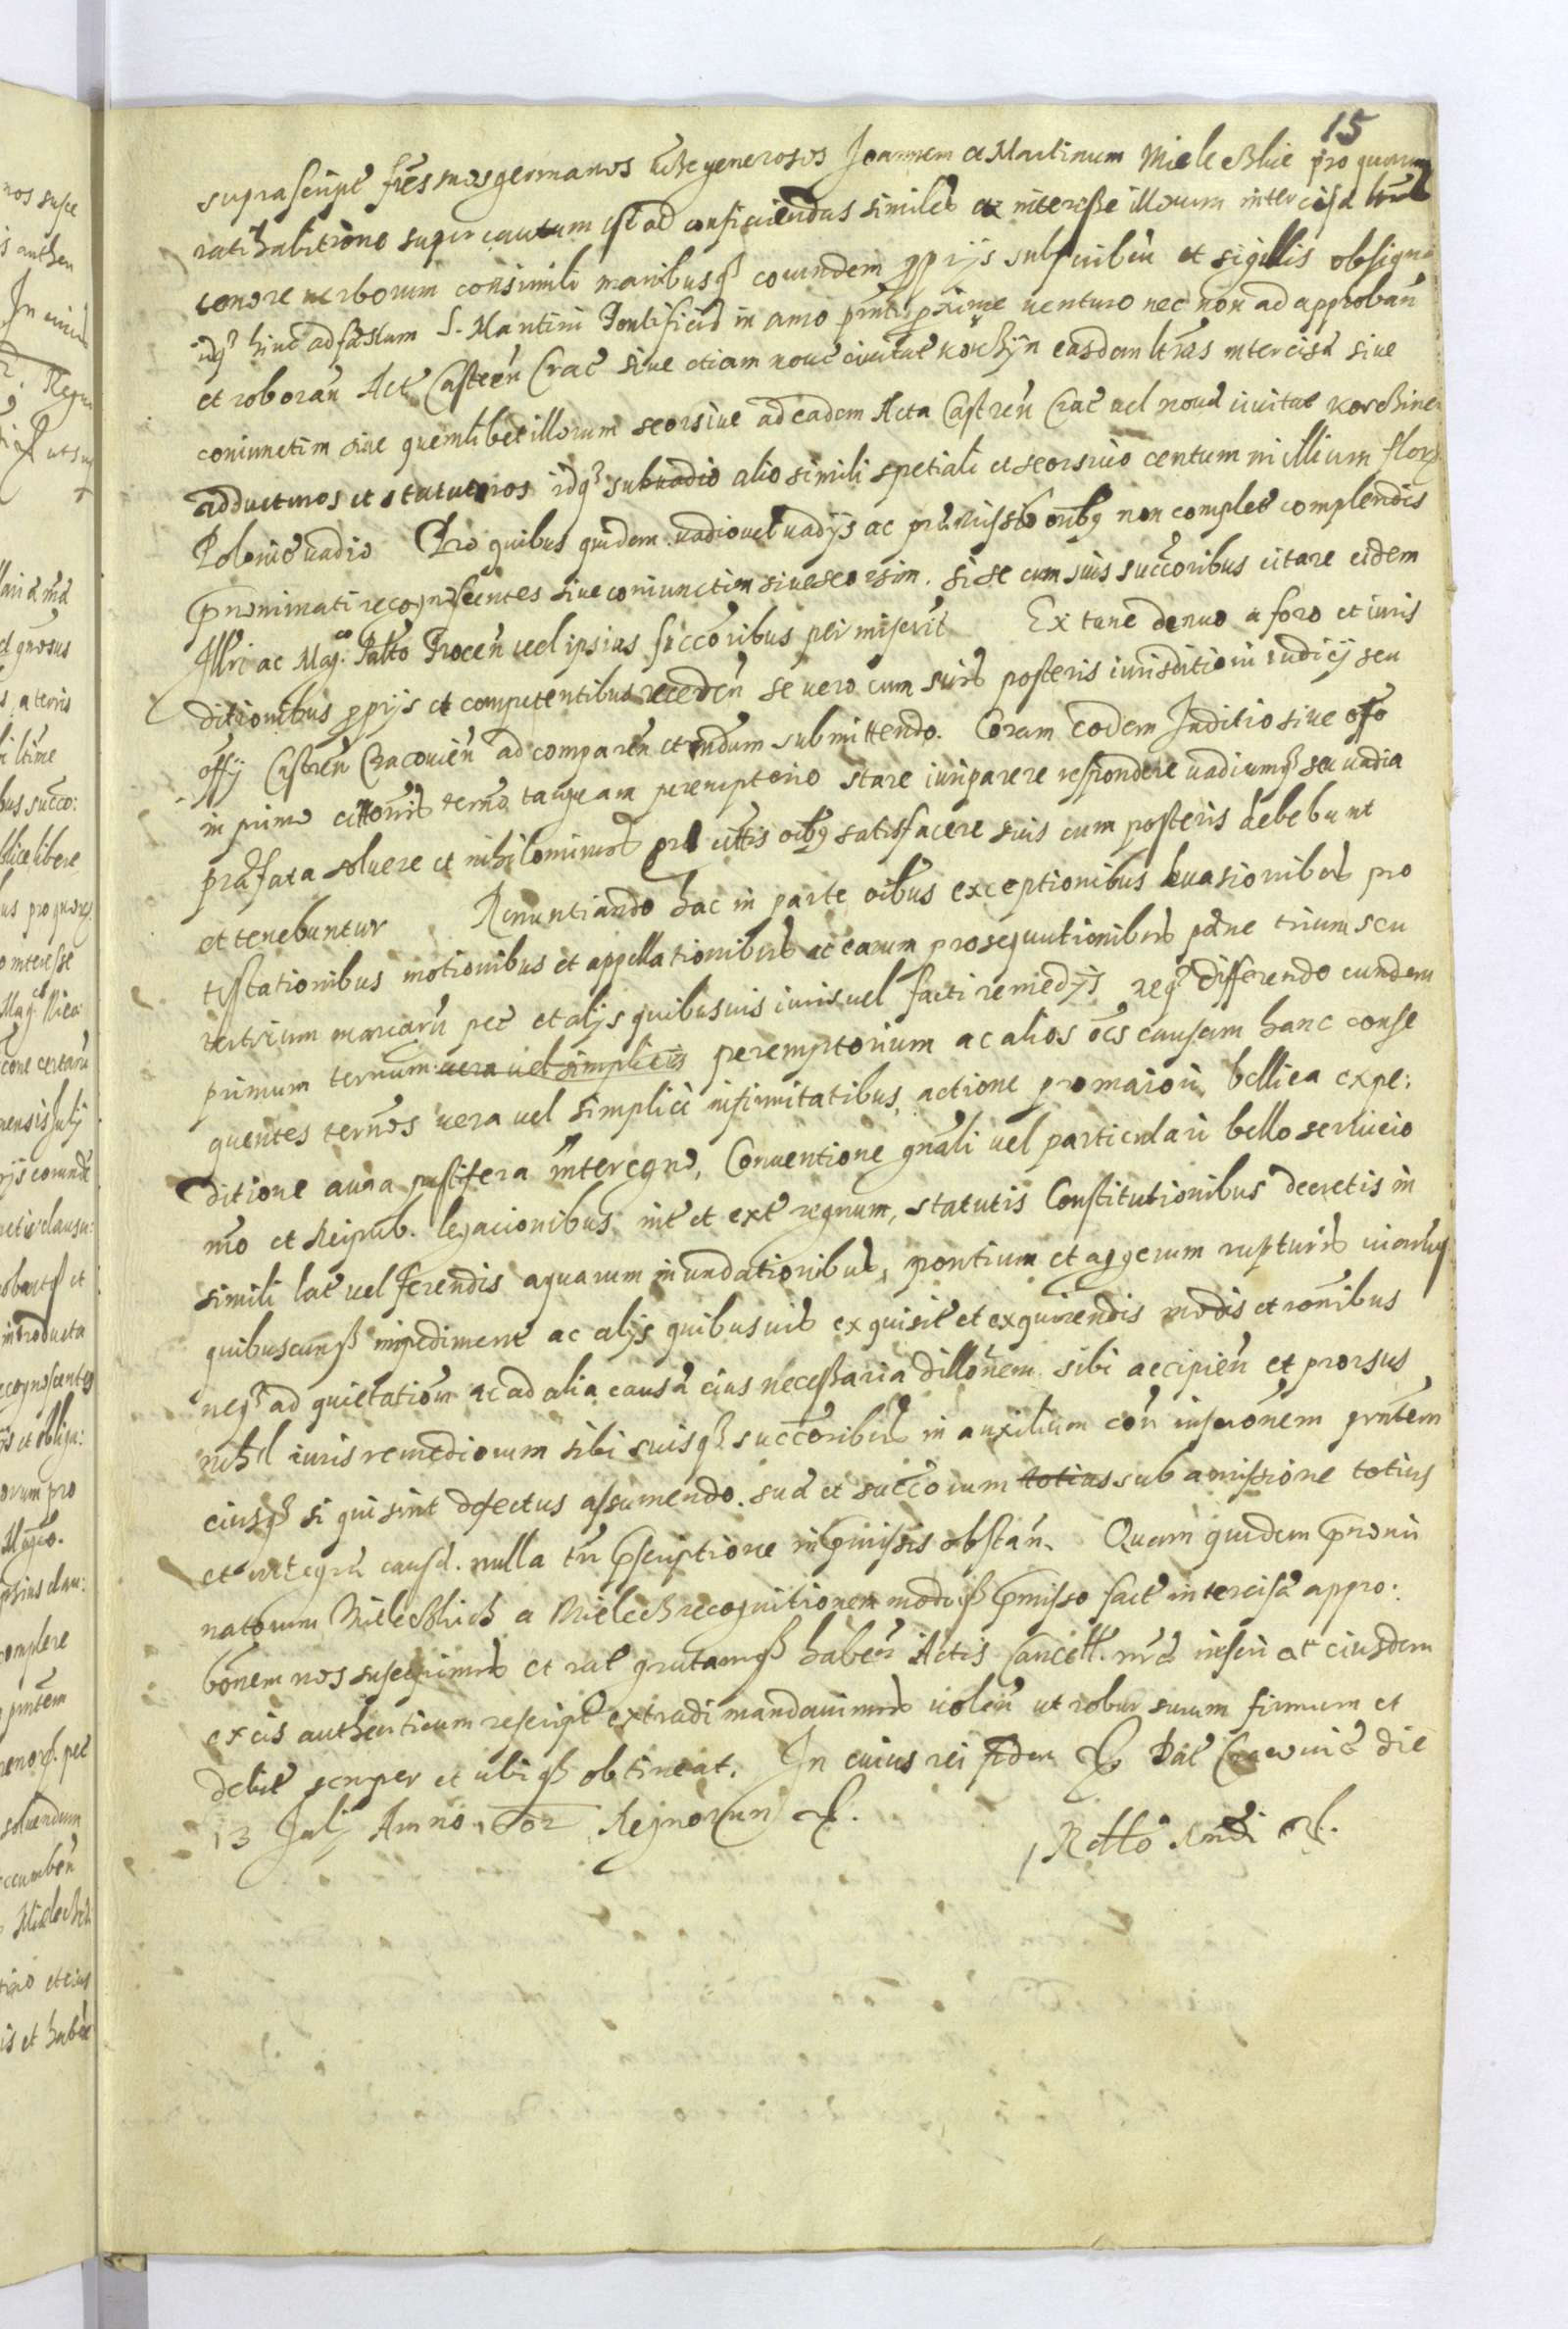 15
suprascript fres suos germanos utse generosos Joannem et Martinum Mieleczkie pro quarum
ratihabitione super cautum est ad conficiendas similes et interesse illorum intercisa
tenore verborum consimili manibusq eorundem ppriis subscriben et sigillis obsigna
idq hinc ad fæstum S. Martini Pontificis in anno pnti pxime venturo nec non ad approban
et roboran Act Castren Crac siue etiam noue ciuitat korchyn easdem lras intercisa siue
coniunctim siue quemlibet illorum seorsiue ad eadem Acta Castren Crac vel noua ciuitat korchinen
adducturos et statuturos idq sub vadio alio simili spetiali et seorsiuo centum millium flor
Polonic vadio Pro quibus quidem vadio vel vadijs ac præmissis oibq non complet complendis
prænominati recognoscentes siue coniunctim siue seorsim. si se cum suis succoribus citare eidem
Illri ac Mag. Palto Procen vel ipsius succoribus permiserit Ex tunc denuo a foro et iuris
ditionibus pprijs et competentibus receden se vero cum suis posteris iurisditioni iudicij seu
offij Castren Cracouien ad comparen etndum submittendo. Coram eodem Juditio siue offo
in primo cittonis termo tanquam peremptorio stare iuri parere respondere vadiumq seu vadia
præfata soluere et nihilominus pr cittis oibq satisfacere suis cum posteris debebunt
et tenebuntur Renuntiando hac in parte oibus exceptionibus euasionibus pro
testationibus motionibus et appellationibus ac earum prosequutionibus pæne trium seu
trium marcaru pec et alijs quibusuis iuris vel facti remedijs neq differendo eundem
primum ternum vera vel simplicis peremptorium ac alios oes causam hanc conse
quentes ternos vera vel simplici infirmitatibus, actione pro maiori, bellica expe:
ditione aura pestifera interegno, Conuentione gnali vel particulari bello seruicio
nro et Reipub. legacionibus int et ext regnum, statutis Constitutionibus decretis in
simili lat vel ferendis aquarum inundationibus, pontium et aggerum rupturis viarumq
quibuscunq impediment ac alijs quibusuis exquisit et exquirendis modis et ronibus
neq ad quietationem ac ad alia causa eius necessaria dillonem sibi accipien et prorsus
nihil iuris remediorum sibi suisq succoribus in auxilium con inscronem pntem
eiusq si qui sint defectus assumendo. sua et succorum totius sub amissione totius
et integra causa. nulla tn pscriptione in pmissis obstan. Quam quidem prænomi
natorum Mieleczkich a Mielecz recognitionem modoq pmisso fact intercisa appro:
bonem nos suscepimus et rat gratamq haben Actis Cancell. nra inseri at eiusdem
ex eis authenticum rescript extradi mandauimus volen ut robur suum firmum et
debit semper et ubiq obtineat. In cuius rei fidem &c Dat Cracouiæ die
13 Julij Anno 1602 Regnorum &c.
Rtto &c.